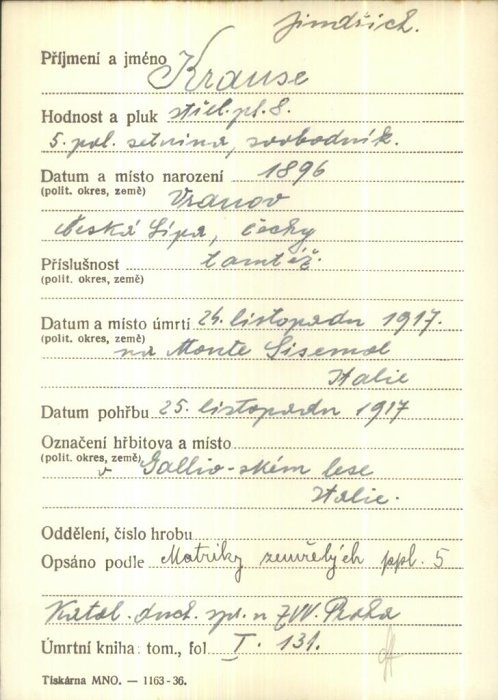 Jindřich.
Příjmení a jméno Krause
Hodnost a pluk střel. pl. 8.
5. pol. setnina, svobodník.
Datum a místo narození 1896
(polit. okres, země) Vranov
Česká Lípa, Čechy
Příslušnost tamtéž.
(polit. okres, země)
Datum a místo úmrtí 24. listopadu 1917.
(polit. okres, země) na Monte Sisemol
Italie
Datum pohřbu 25. listopadu 1917
Označení hřbitova a místo
(polit. okres, země) v Gallio-ském lese
Italie.
Oddělení, číslo hrobu
Opsáno podle Matriky zemřelých ppl. 5
Katol. duch. spr. u ZVV. Praha
Úmrtní kniha: tom., fol. I. 131.
Tiskárna MNO. — 1163-36.